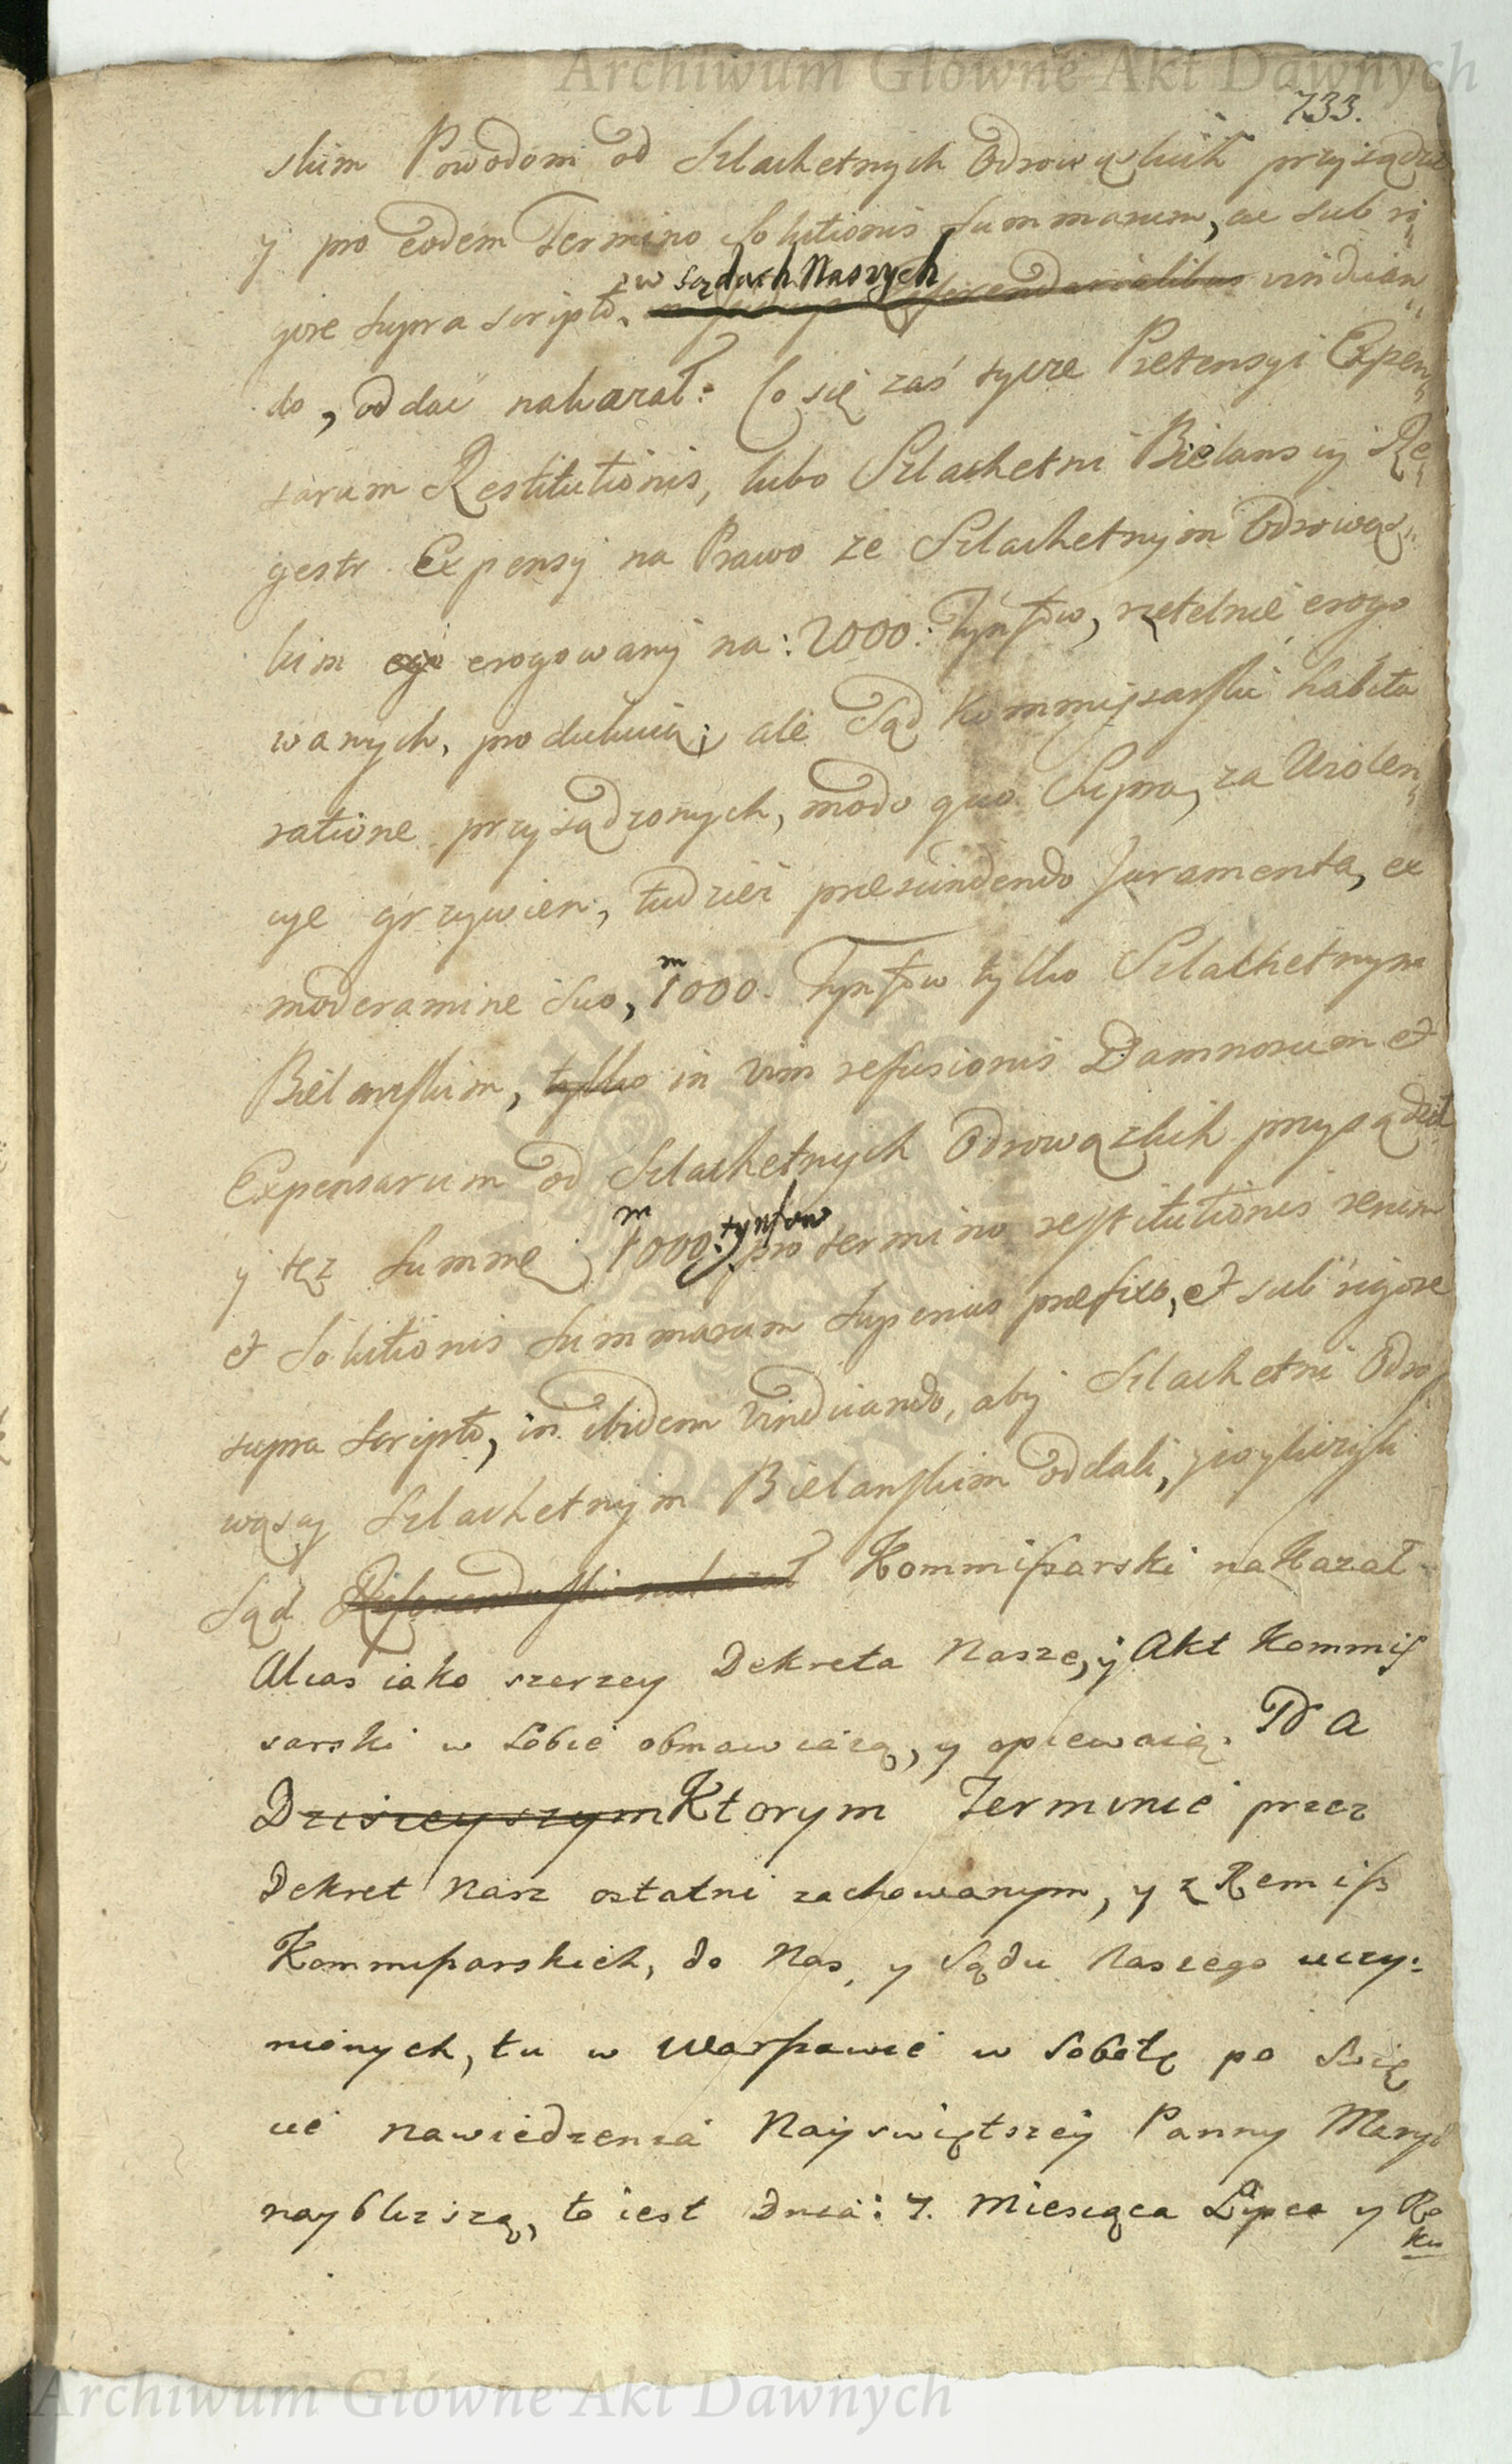 Archiwum Główne Akt Dawnych
733.
skim Powodom od Szlachetnych Odrowąskich przysądził
y pro eodem Termino Solutionis Summarum, ac sub ri„
w sądach Naszych
gore supra scripto, Referendarialibus vindican„
do, oddać nakazał: Co się zaś tycze Pretensyi Expen„
sarum Restitutionis, lubo Szlachetni Bielanscy Re„
gestr Expensy na Prawo ze Szlachetnym Odrowąs„
kim erogowany na: 2000: Tynfow, rzetelnie erogo
wanych, produkuią; ale Sąd Kommissarski habita
ratione przysądzonych, modo quo Supra, za Violen„
cye grzywien, tudziez praescindendo Juramenta, ex
moderamine suo, 1000. Tynfow tylko Szlachetnym
m
Bielanskim, tylko in vim refusionis Damnorum et
Expensarum od Szlachetnych Odrowązkich przysądził
m tynfow
y tęz Summę 1000: pro termino restitutionis rerum
et Solutionis Summarum Superius praefixo, et sub rigore
supra scripto, in ibidem vindicando, aby Szlachetni Odro„
wąscy Szlachetnym Bielanskim oddali, y wyliczyli
Sąd Referendarski nakazał Kommissarski nakazał
Alias iako szerzey Dekreta Nasze, y Akt Kommis
sarski w Sobie obmawiaią, y opiewaią. Na
Dzisieyszym Ktorym Terminie przez
Dekret Nasz ostatni zachowanym, y z Remiss
Kommissarskich, do Nas, y Sądu Naszego uczy:
nionych, tu w Warszawie w Sobotę po Swię
cie Nawiedzenia Nayswiętszey Panny Maryi
nayblizszą, to iest Dnia: 7. Miesiąca Lipca y Ro
ku
Archiwum Główne Akt Dawnych